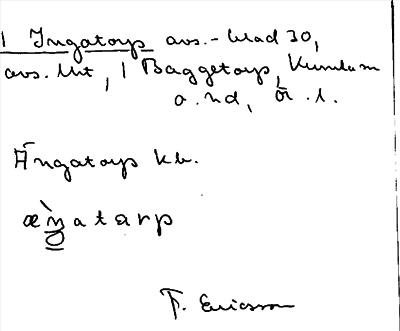 1 Ingatorp avs.-blad 30,
avs. utt, 1 Baggetorp, Kumlam
a. nd, Ör. l.
Ängatorp kb.
æ̀ŋatarp
F. Ericsson